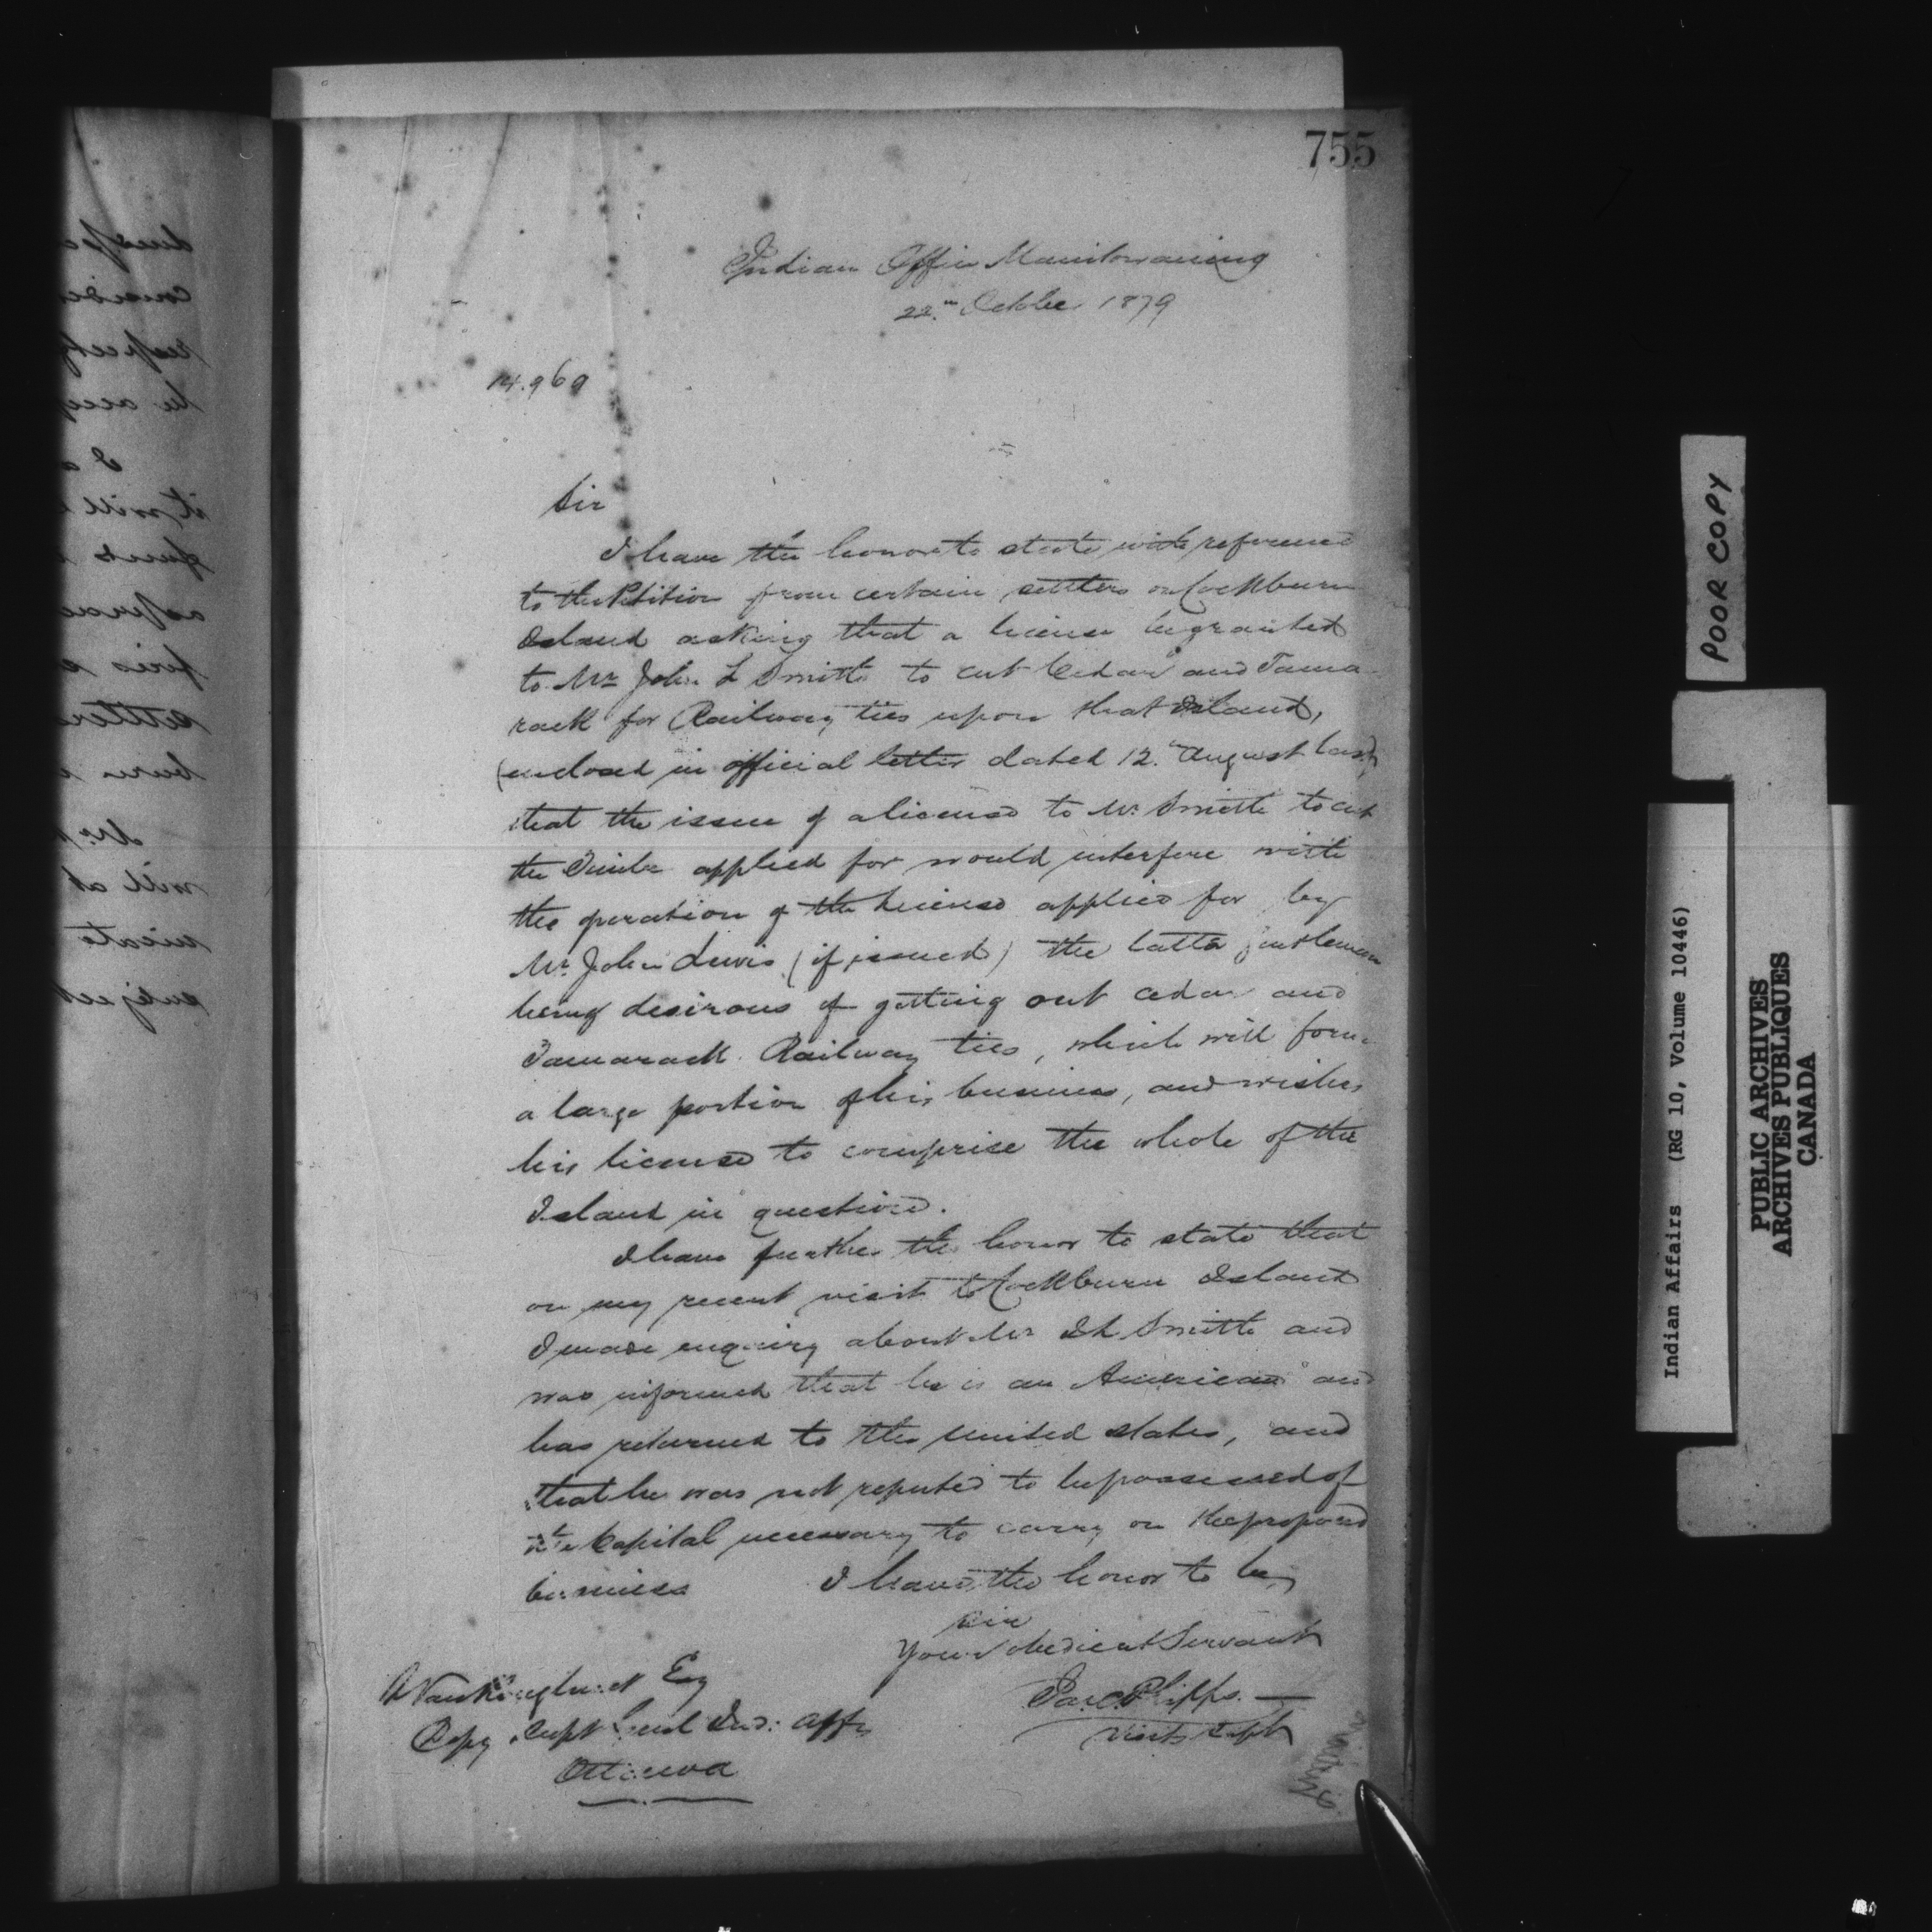 755
Indian Office Manitowaning
22nd October 1879
14.969
Sir
I have the honor to state with reference
to the Petition from certain settlers on Cockburn
Island asking that a license be granted
to Mr John L Smith to cut Cedar and Tama-
rack for Railway ties upon that Island,
(enclosed in official letter dated 12th August last)
that the issue of a license to Mr. Smith to cut
the Timber applied for would interfere with
the operation of the license applied for by
Mr. John Lewis (if issued) the latter gentleman
being desirous of getting out cedar and
Tamarack Railway ties, which will form
a large portion of his business, and wishes
his license to comprise the whole of the
Island in question.
I have further the honor to state that
on my recent visit to Cockburn Island
I made enquiry about Mr Smith and
was informed that he is an American and
has returned to the United States, and
that he was not reputed to be possessed of
the Capital necessary to carry on the proposed
business I have the honor to be,
Sir
Your obedient Servant
Jas. C. Phipps.
Visitg Supt
L Vankoughnet Esq
Depy Supt Genl Ind: Affrs
Ottawa
POOR COPY
Indian Affairs (RG 10, Volume 10446)
PUBLIC ARCHIVES
ARCHIVES PUBLIQUES
CANADA